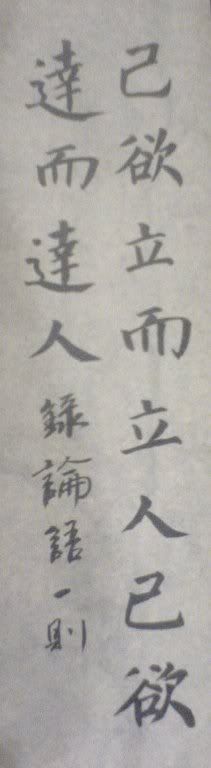 己欲立而立人己欲
達而達人錄論語一則